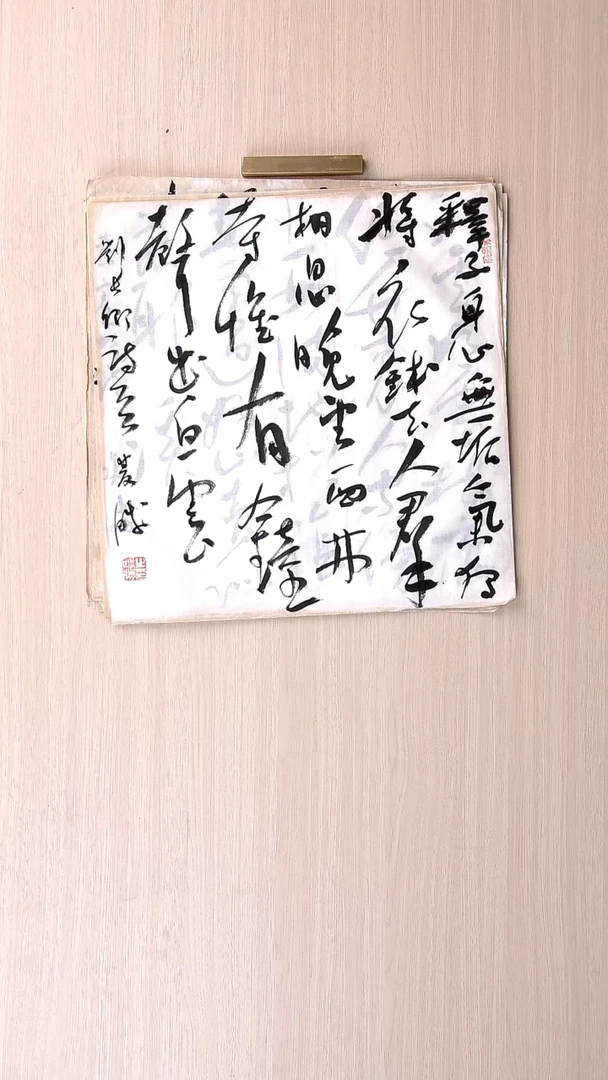 釋子身心無垢氣獨
將衣鉢去人羣
相思晚望西林
寺惟有鐘
聲出白雲
劉長卿詩